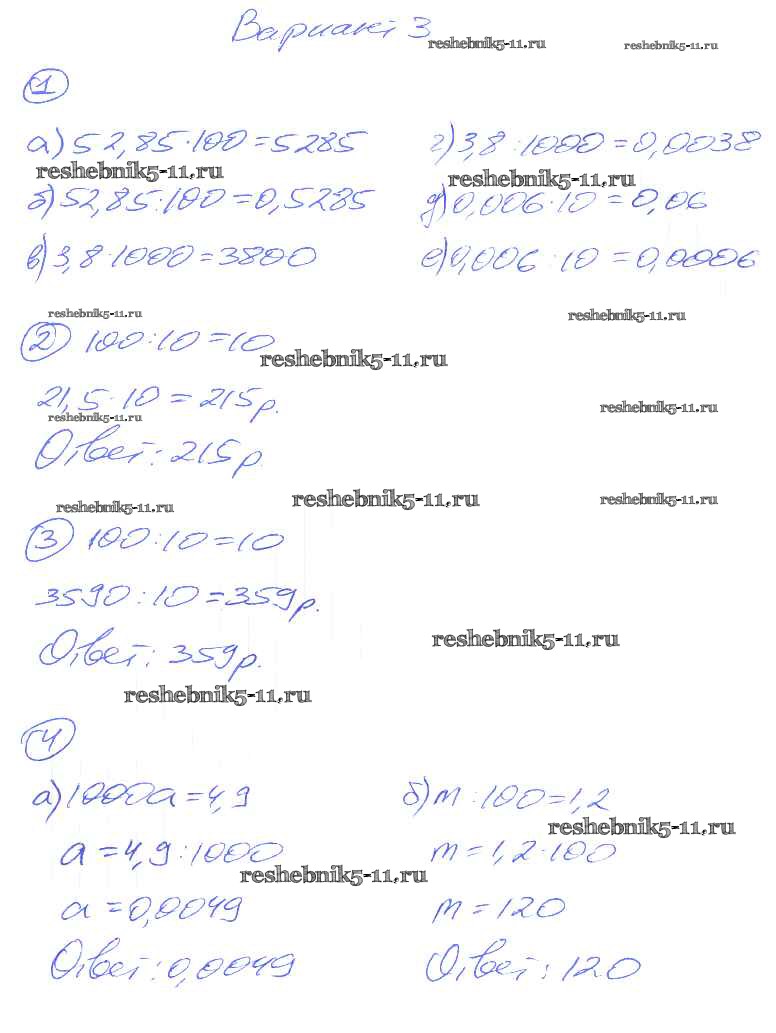 Вариант 3
reshebnik5-11.ru reshebnik5-11.ru
1
а) 52,85·100=5285 г) 3,8:1000=0,0038
reshebnik5-11.ru reshebnik5-11.ru
б) 52,85:100=0,5285 д) 0,006·10=0,06
в) 3,8·1000=3800 е) 0,006:10=0,0006
reshebnik5-11.ru reshebnik5-11.ru
2 100:10=10
reshebnik5-11.ru
21,5·10=215р.
reshebnik5-11.ru reshebnik5-11.ru
Ответ: 215р.
reshebnik5-11.ru reshebnik5-11.ru reshebnik5-11.ru
3 100:10=10
3590:10=359р.
reshebnik5-11.ru
Ответ: 359р.
reshebnik5-11.ru
4
а) 1000a=4,9 б) m:100=1,2
reshebnik5-11.ru
a=4,9:1000 m=1,2·100
reshebnik5-11.ru
a=0,0049 m=120
Ответ: 0,0049 Ответ: 120